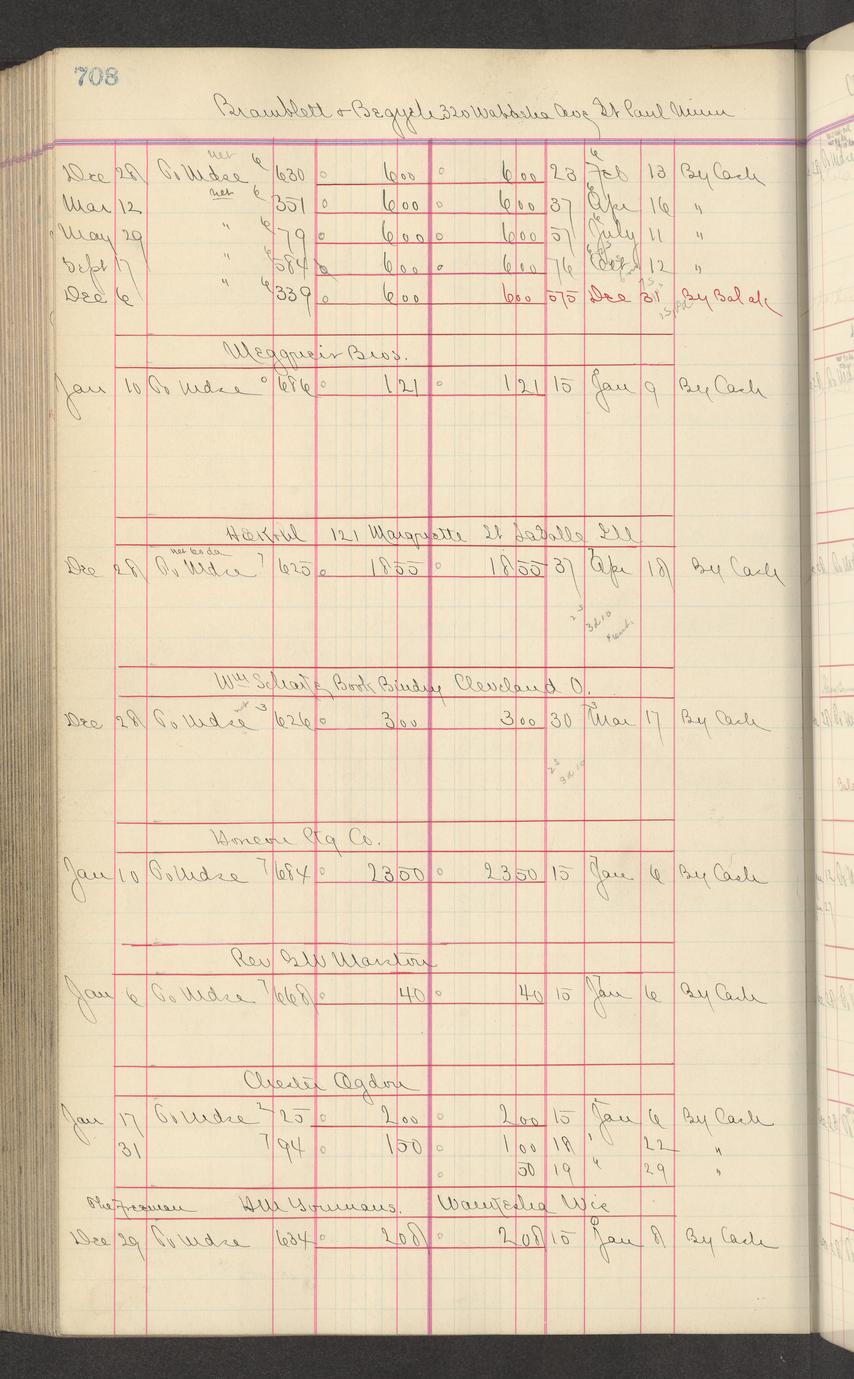 708
Bramblett & Begych 320 Wabasha Ave St Paul Minn
Dec 28 To Mdse net 6 630 6 00 6 00 23 Feb 13 By Cash
Mar 12 net 6 351 6 00 6 00 37 Apr 16 "
May 29 " 6 79 6 00 6 00 57 July 11 "
Sept 17 " 6 584 6 00 6 00 76 Oct 12 "
Dec 6 " 6 339 6 00 6 00 575 Dec 31 By Bal
Meggueir Bros.
Jan 10 To Mdse 686 1 21 1 21 15 Jan 9 By Cash
121 Marquette St LaSalle Ill
Dec 28 To Mdse net 60 da 7 625 18 55 18 55 37 Apr 18 By Cash
Wm Schaitz Book Bindry Cleveland O.
Dec 28 To Mdse net 3 626 3 00 3 00 30 Mar 17 By Cash
Ptg Co.
Jan 10 To Mdse 7 684 23 50 23 50 15 Jan 6 By Cash
Rev GW Marston
Jan 6 To Mdse 7 668 40 40 15 Jan 6 By Cash
Chester Ogdon
Jan 17 To Mdse 2 25 2 00 2 00 15 Jan 6 By Cash
31 7 94 1 50 1 00 18 " 22 "
50 19 " 29 "
The Freeman HM Youmans. Waukesha Wis
Dec 29 To Mdse 634 2 08 2 08 15 Jan 8 By Cash